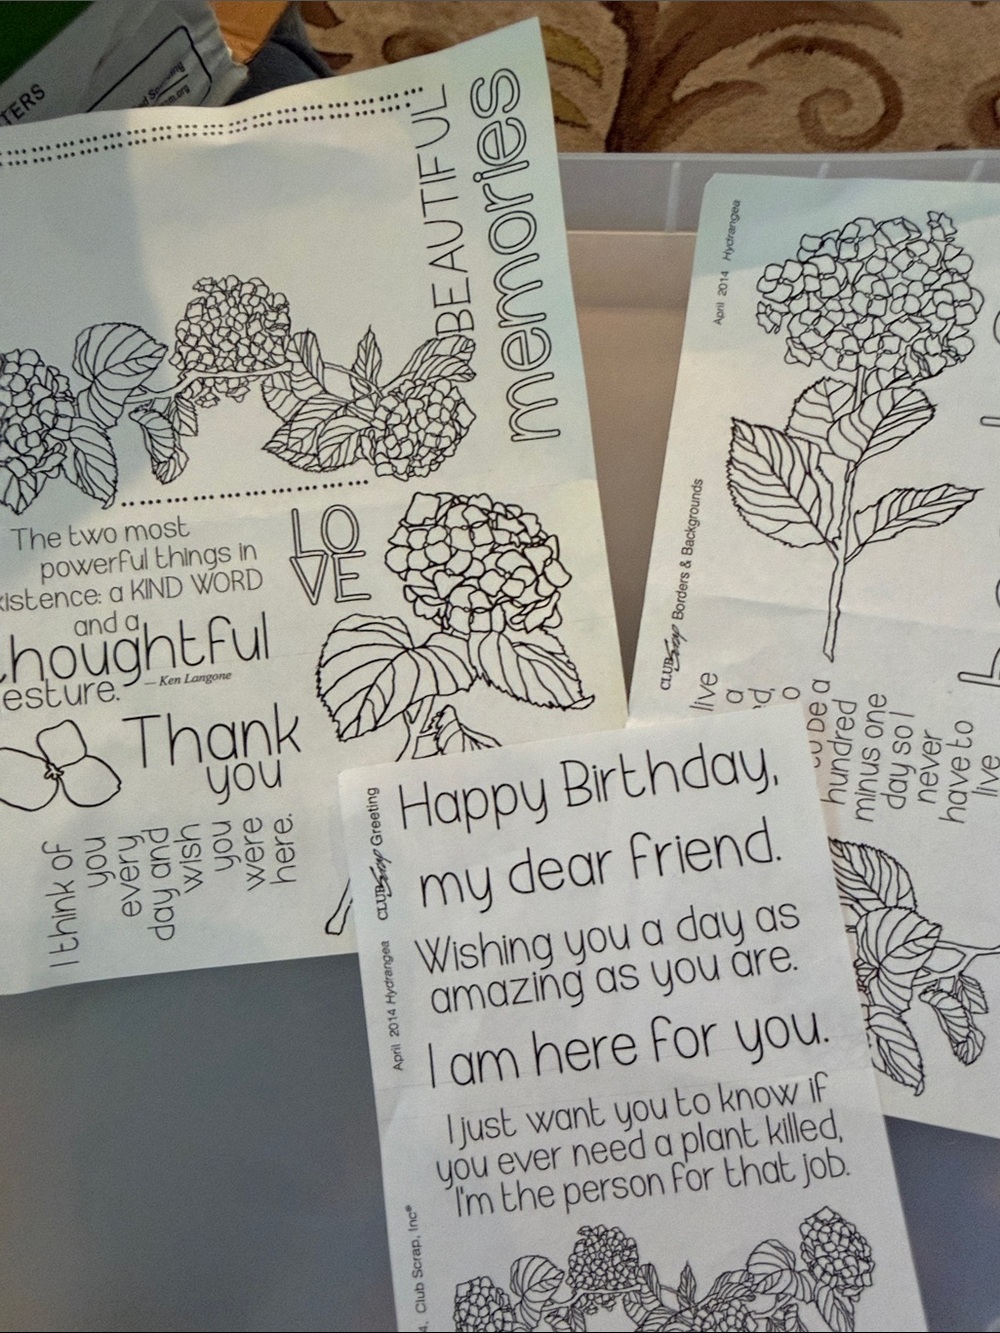 TERS
BEAUTIFUL
memories
The two most
powerful things in
a KIND WORD
and a
thoughtful
— Ken Langone
LO
VE
Thank
you
I think of
you
every
day and
wish
you
were
here.
April 2014 Hydrangea
CLUB Scrap Borders & Backgrounds
live
a
be a
hundred
minus one
day so I
never
have to
live
CLUB Scrap Greeting
April 2014 Hydrangea
Club Scrap, Inc®
Happy Birthday,
my dear friend.
Wishing you a day as
amazing as you are.
I am here for you.
I just want you to know if
you ever need a plant killed,
I'm the person for that job.